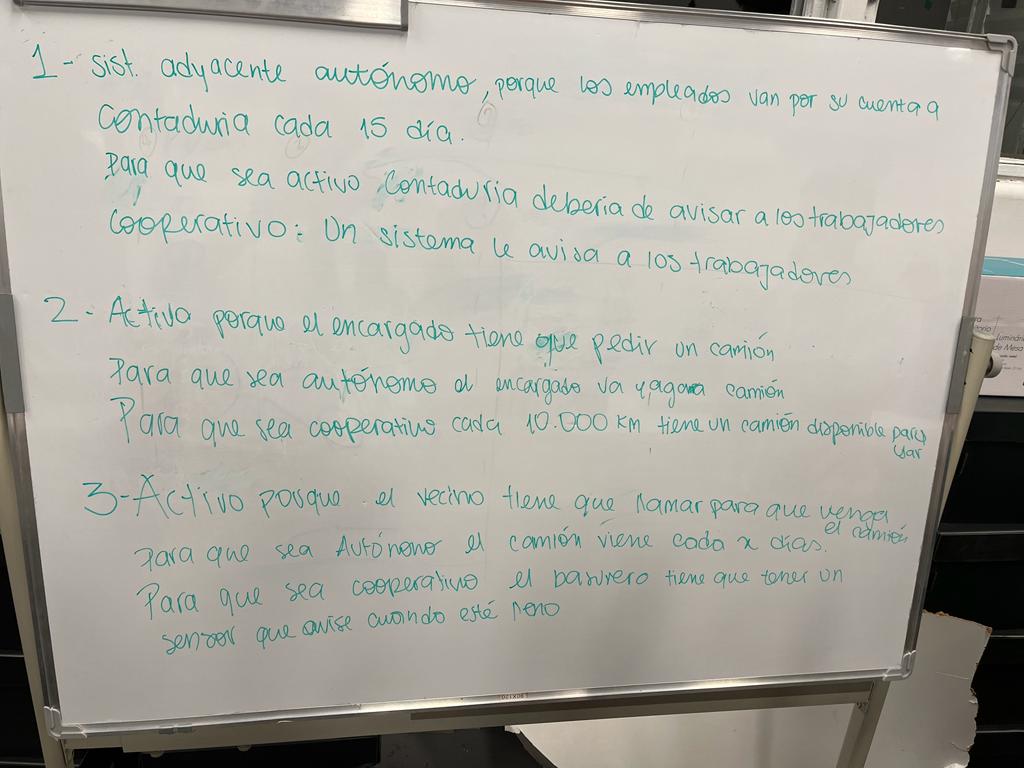 1- sist. adyacente autónomo, porque los empleados van por su cuenta a
Contaduria cada 15 día.
Para que sea activo Contaduría debería de avisar a los trabajadores
Cooperativo: Un sistema le avisa a los trabajadores
2- Activo porque el encargado tiene que pedir un camión
Para que sea autónomo el encargado va y agarra camión
Para que sea cooperativo cada 10.000 KM tiene un camión disponible para
usar
3-Activo porque el vecino tiene que llamar para que venga
el camión
Para que sea Autónomo el camión viene cada x días.
Para que sea cooperativo el basurero tiene que tener un
sensor que avise cuando esté lleno
Luminária
de Mesa